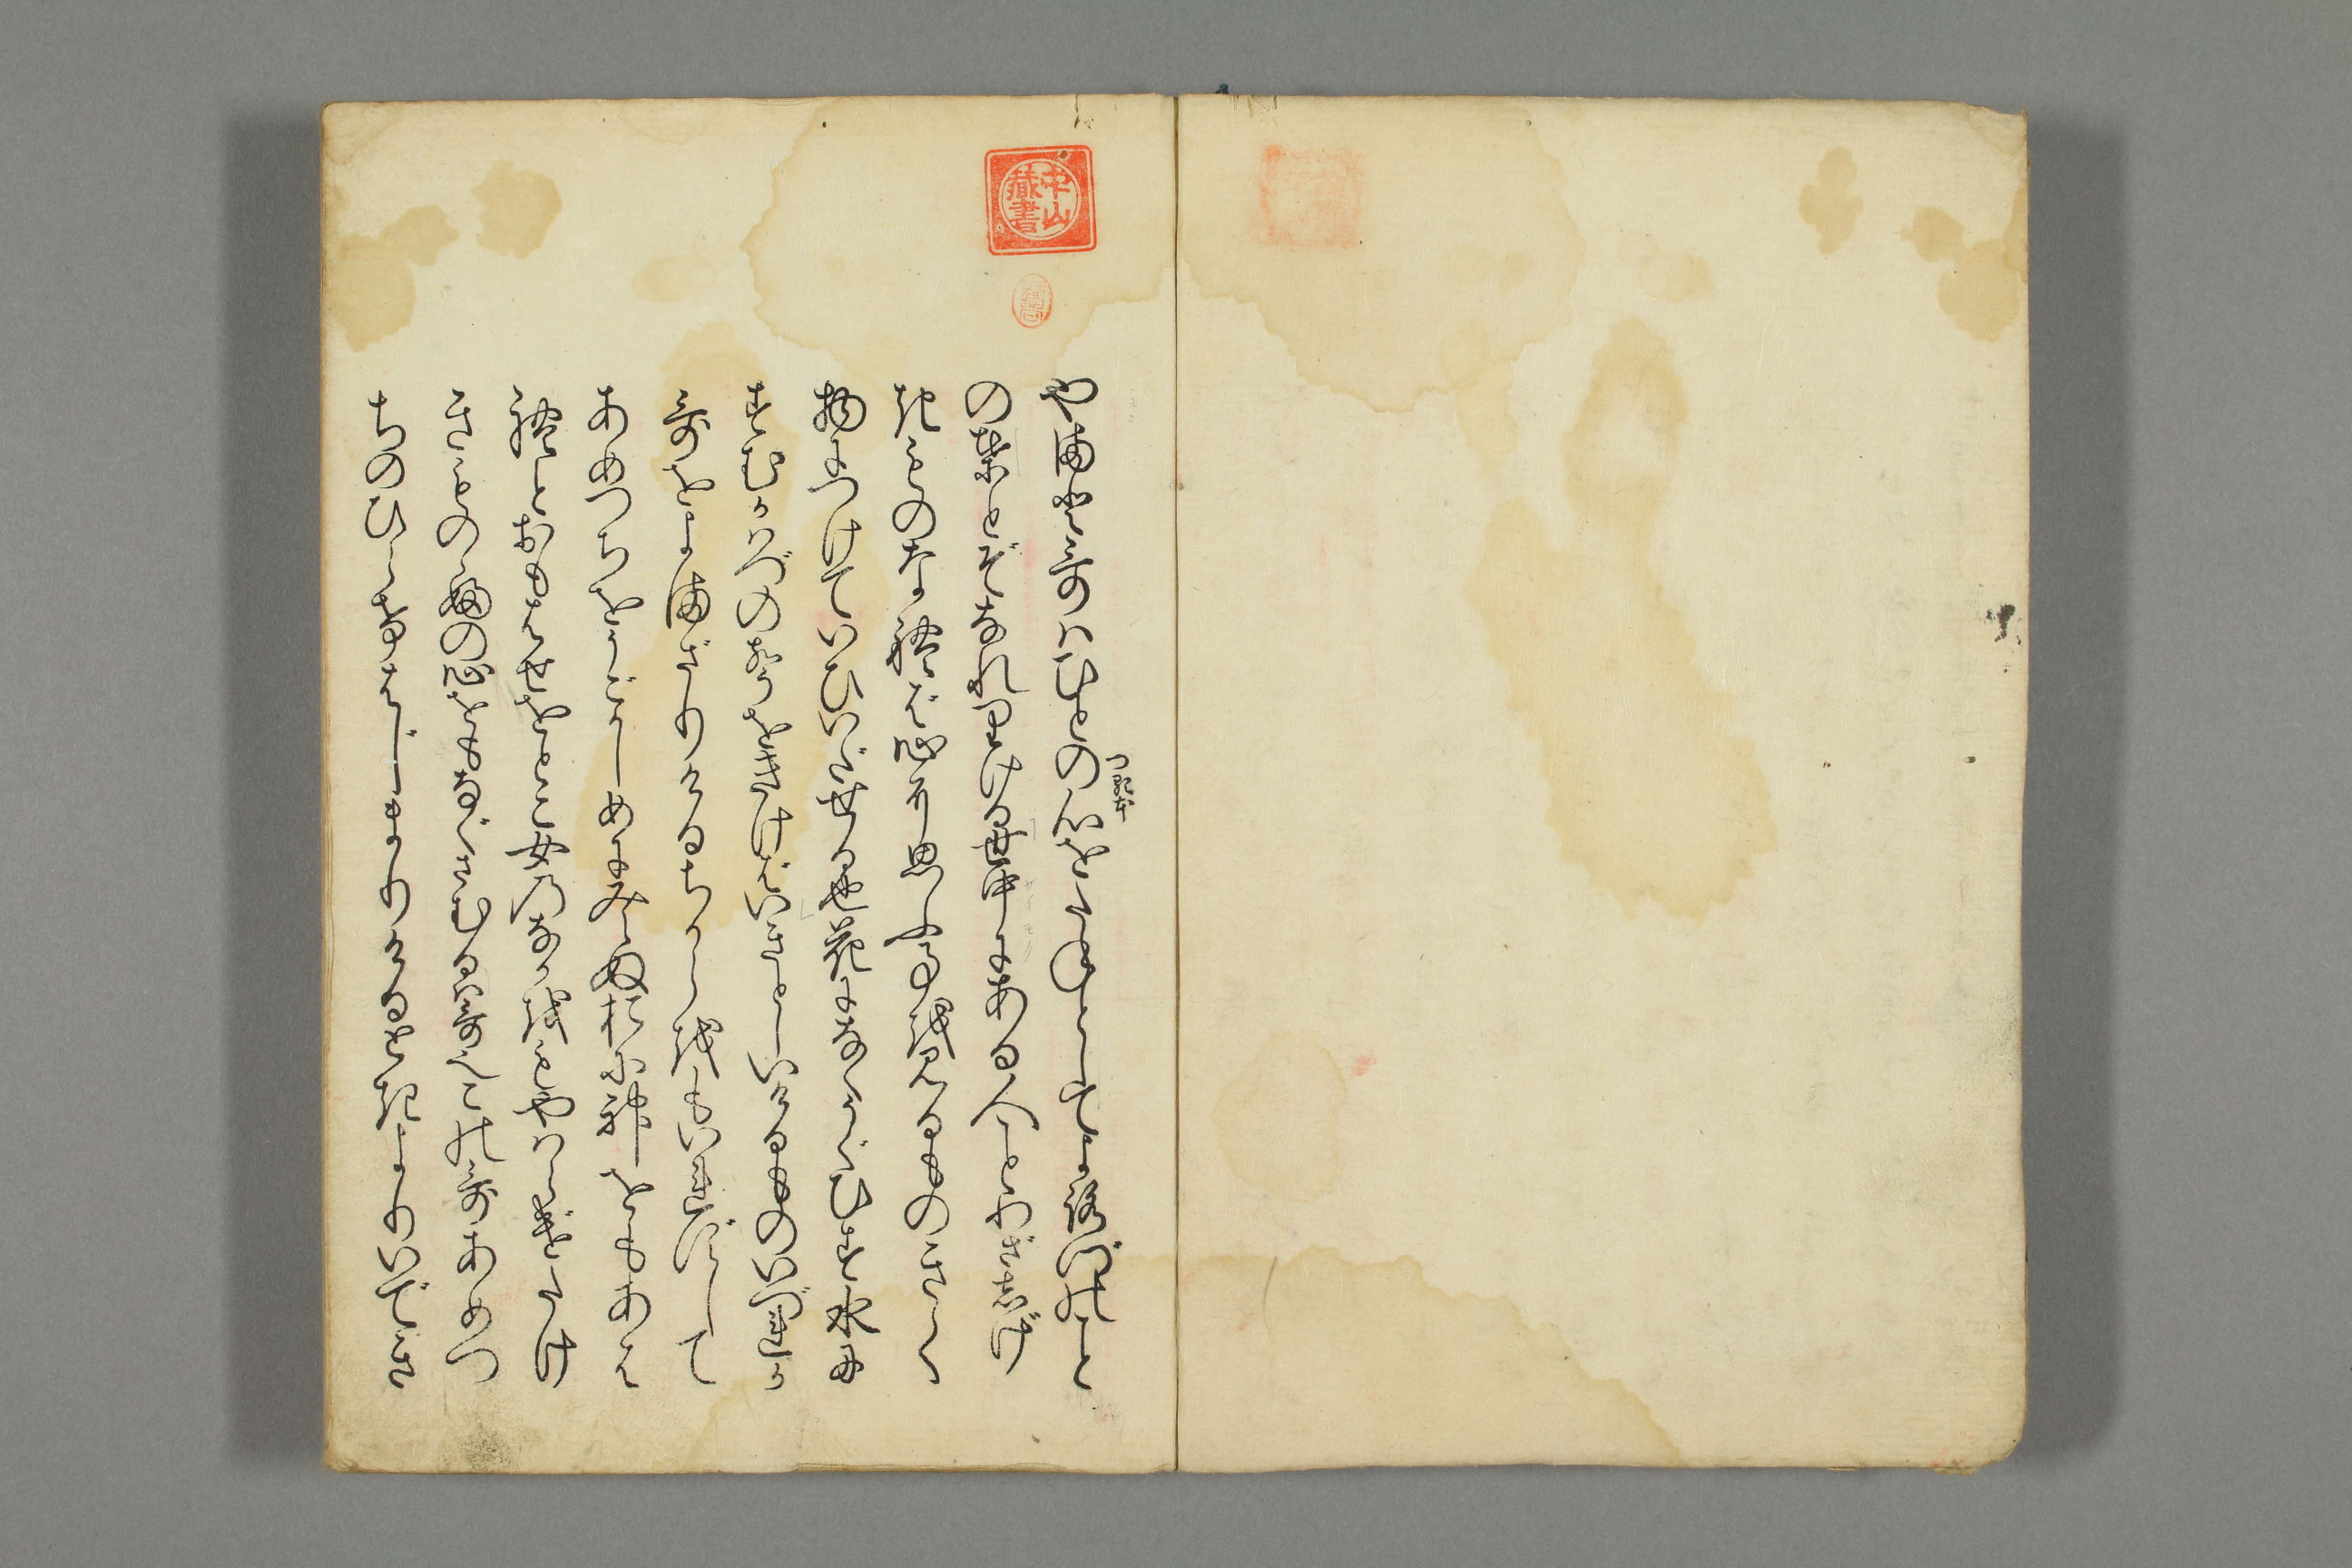 中山
藏書
やまと哥はひとの心をたねとしてよろづのこと
の葉とぞなれりける世中にある人ことわざしげ
きものなれば心に思ふ事を見るものきく
物につけていひいだせる也花になくうぐひす水に
すむかはづのこゑをきけばいきとしいけるものいづれか
哥をよまざりけるちからをもいれずして
あめつちをうごかしめにみえぬおに神をもあは
れとおもはせをとこ女のなかをもやはらげたけ
きものゝふの心をもなぐさむるは哥也この哥あめつ
ちのひらけはじまりけるときよりいでき